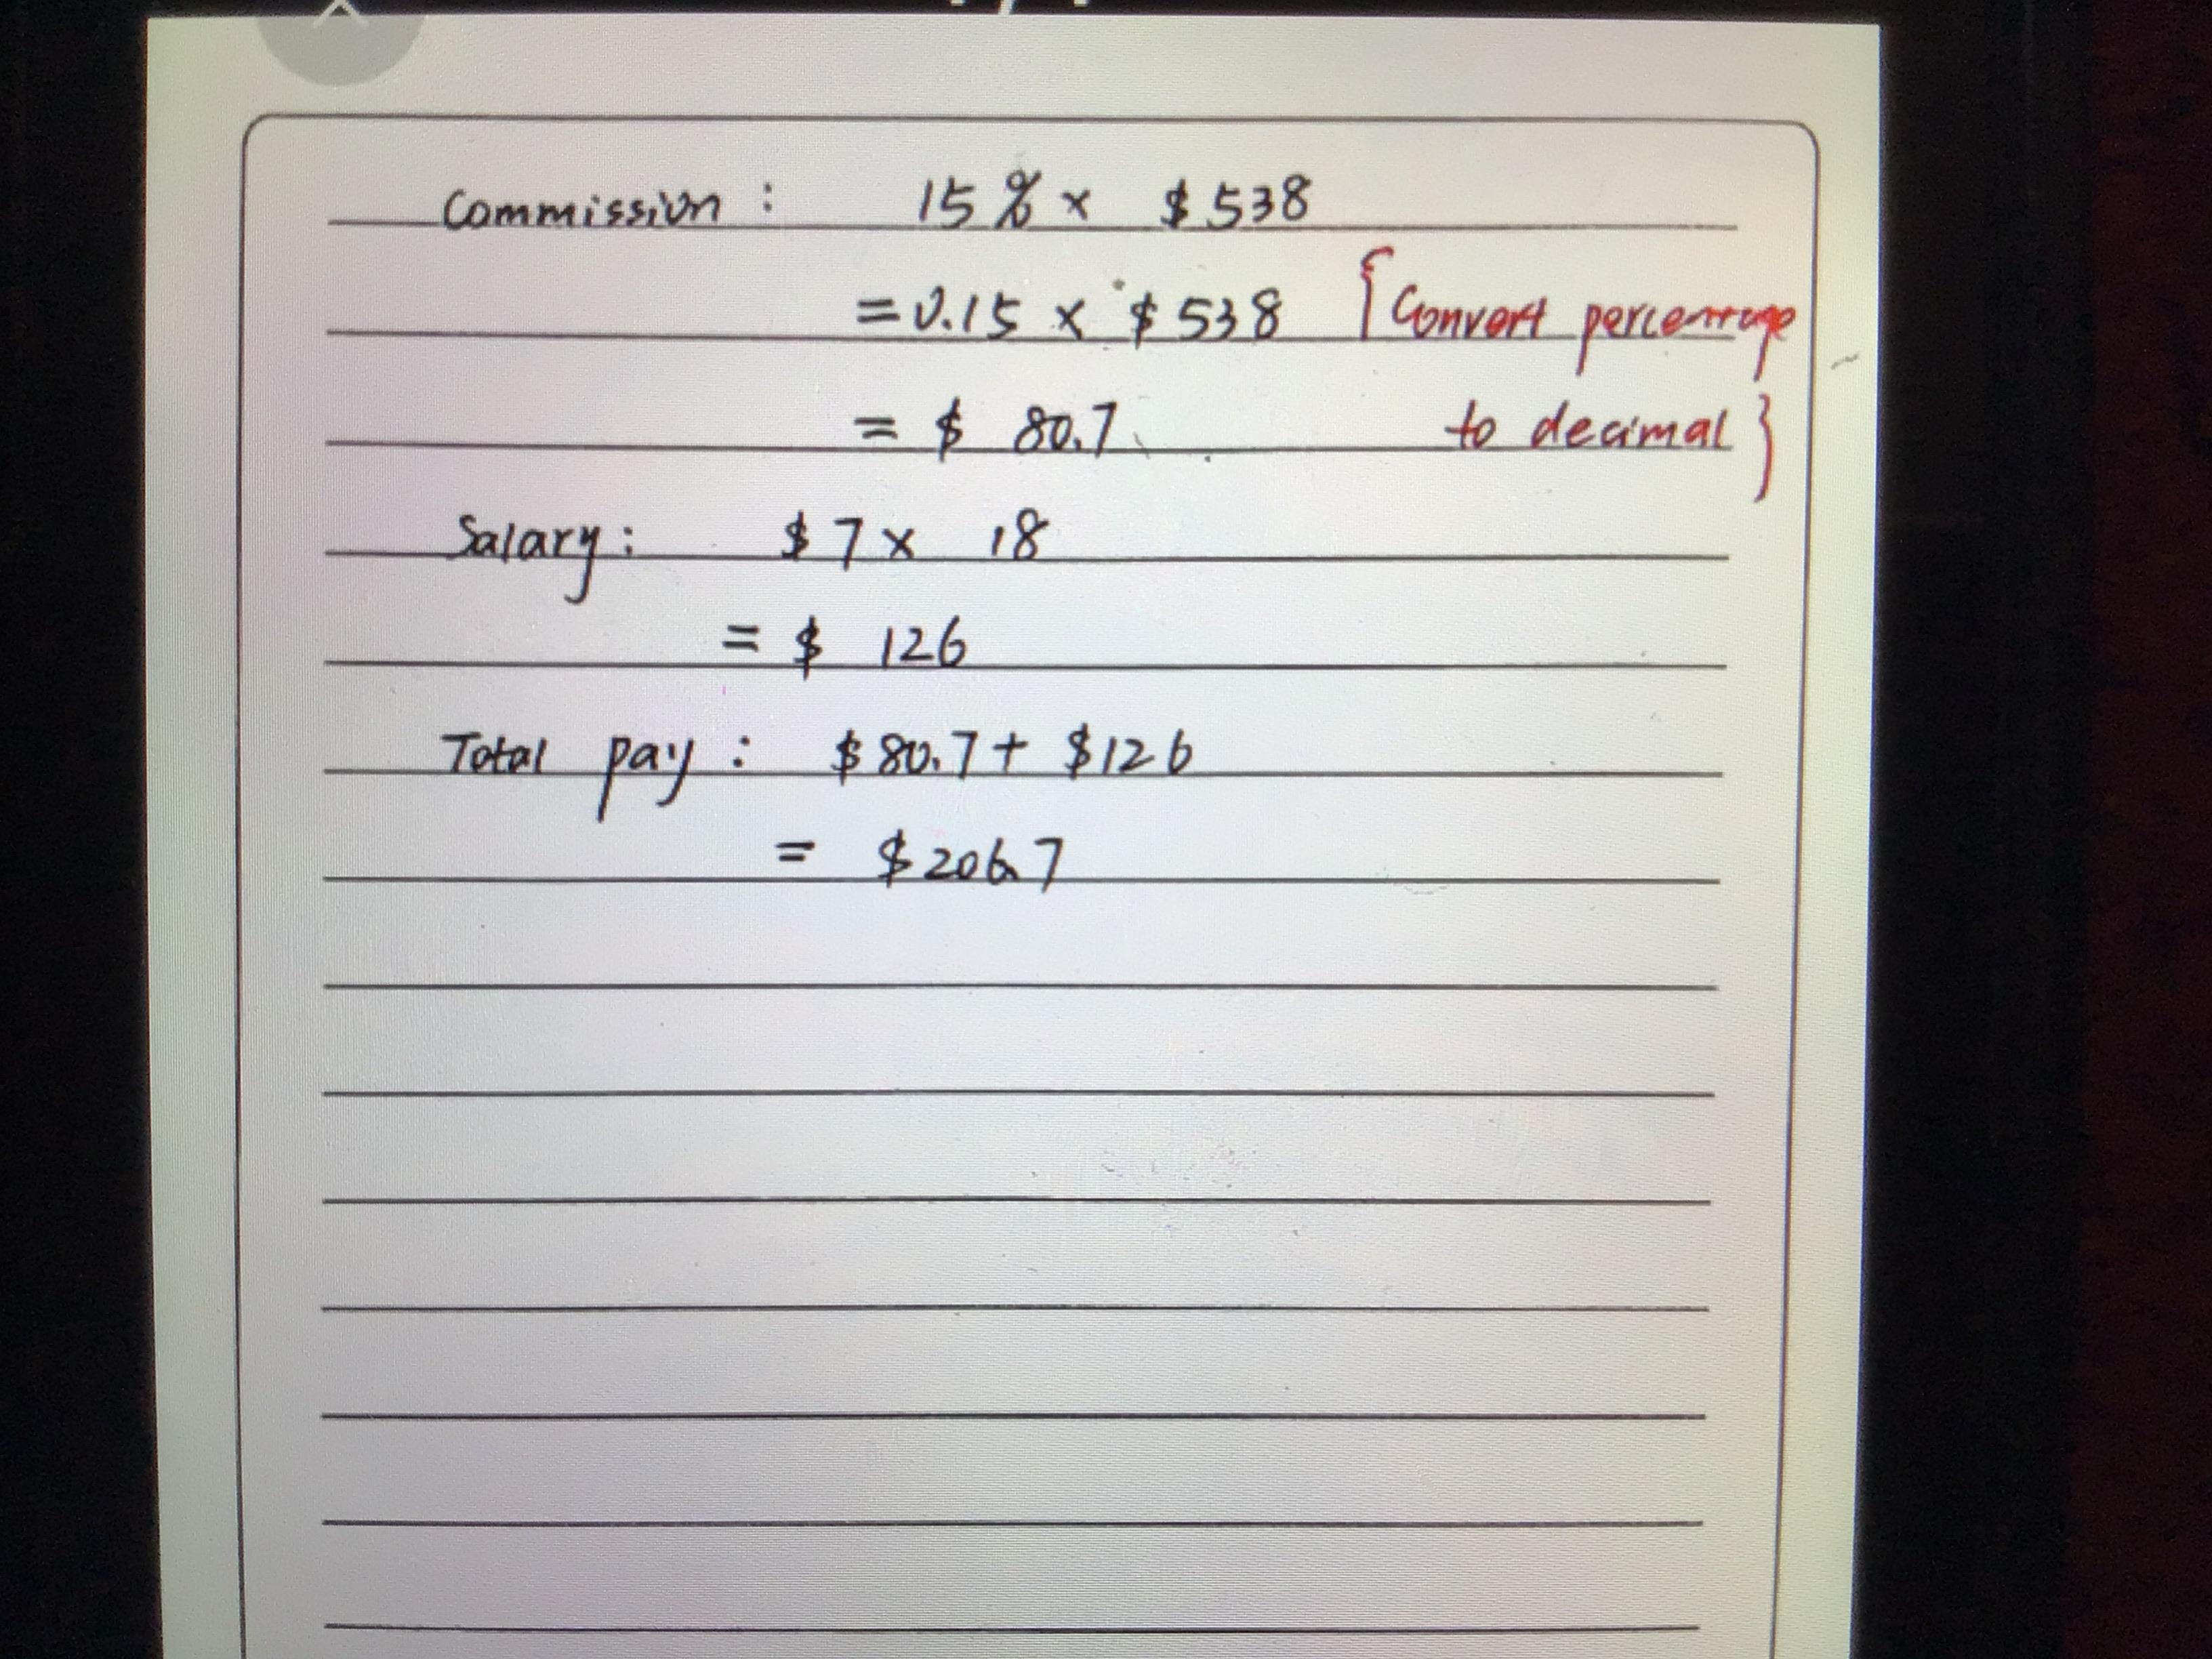 Commission : 15 % x $ 538
= 0.15 x $ 538 { Convert percentage
= $ 80.7 to decimal }
Salary : $ 7 x 18
= $ 126
Total pay : $ 80.7 + $ 126
= $ 206.7